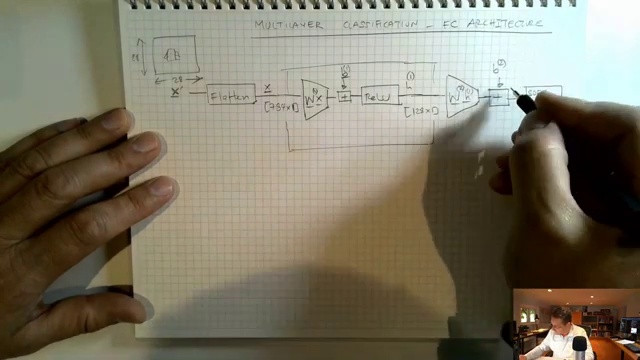 MULTILAYER CLASSIFICATION - FC ARCHITECTURE
28
28
x'
Flatten
x
[784x1]
W(1) x
b(1)
+
ReLU
h(1)
[128x1]
W(2) h(1)
b(2)